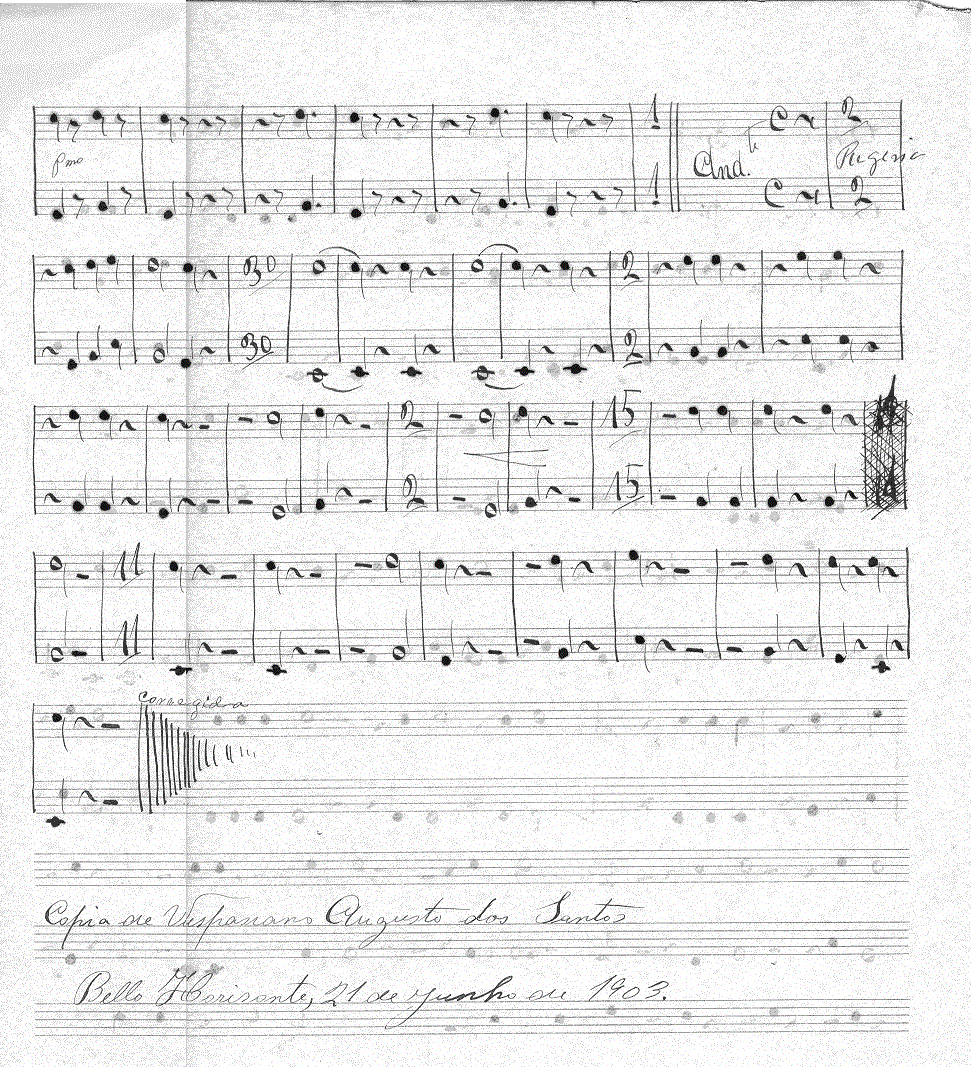 1 2
pmo And.te
1 2
30 2
30 2
2 15
2 15
11
11
Corregida
Copia de Vespasiano Augusto dos Santos
Bello Horisonte, 21 de Junho de 1903.